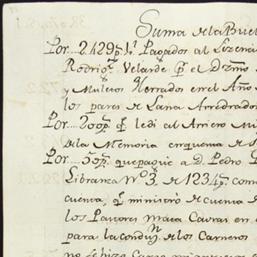 Suma de la Buel
Por... 2429 ps. Pagados al Lizenci
Rodrigs. Velarde pr. el Dezmo
y Muletos Herrados en el Año
los pares de Lana Arredrados
Por... 200 ps. qe. le di al Arriero Mi
de la Memoria cinquenta de
Por... 50 ps. que pague a d. Pedro
Libranza No. 3. de 1234 ps. como
cuenta, qe. ministró de cuenta de
los Pastores Maca Cavras en
para la condun. de los Carneros
no se hizo Cargo